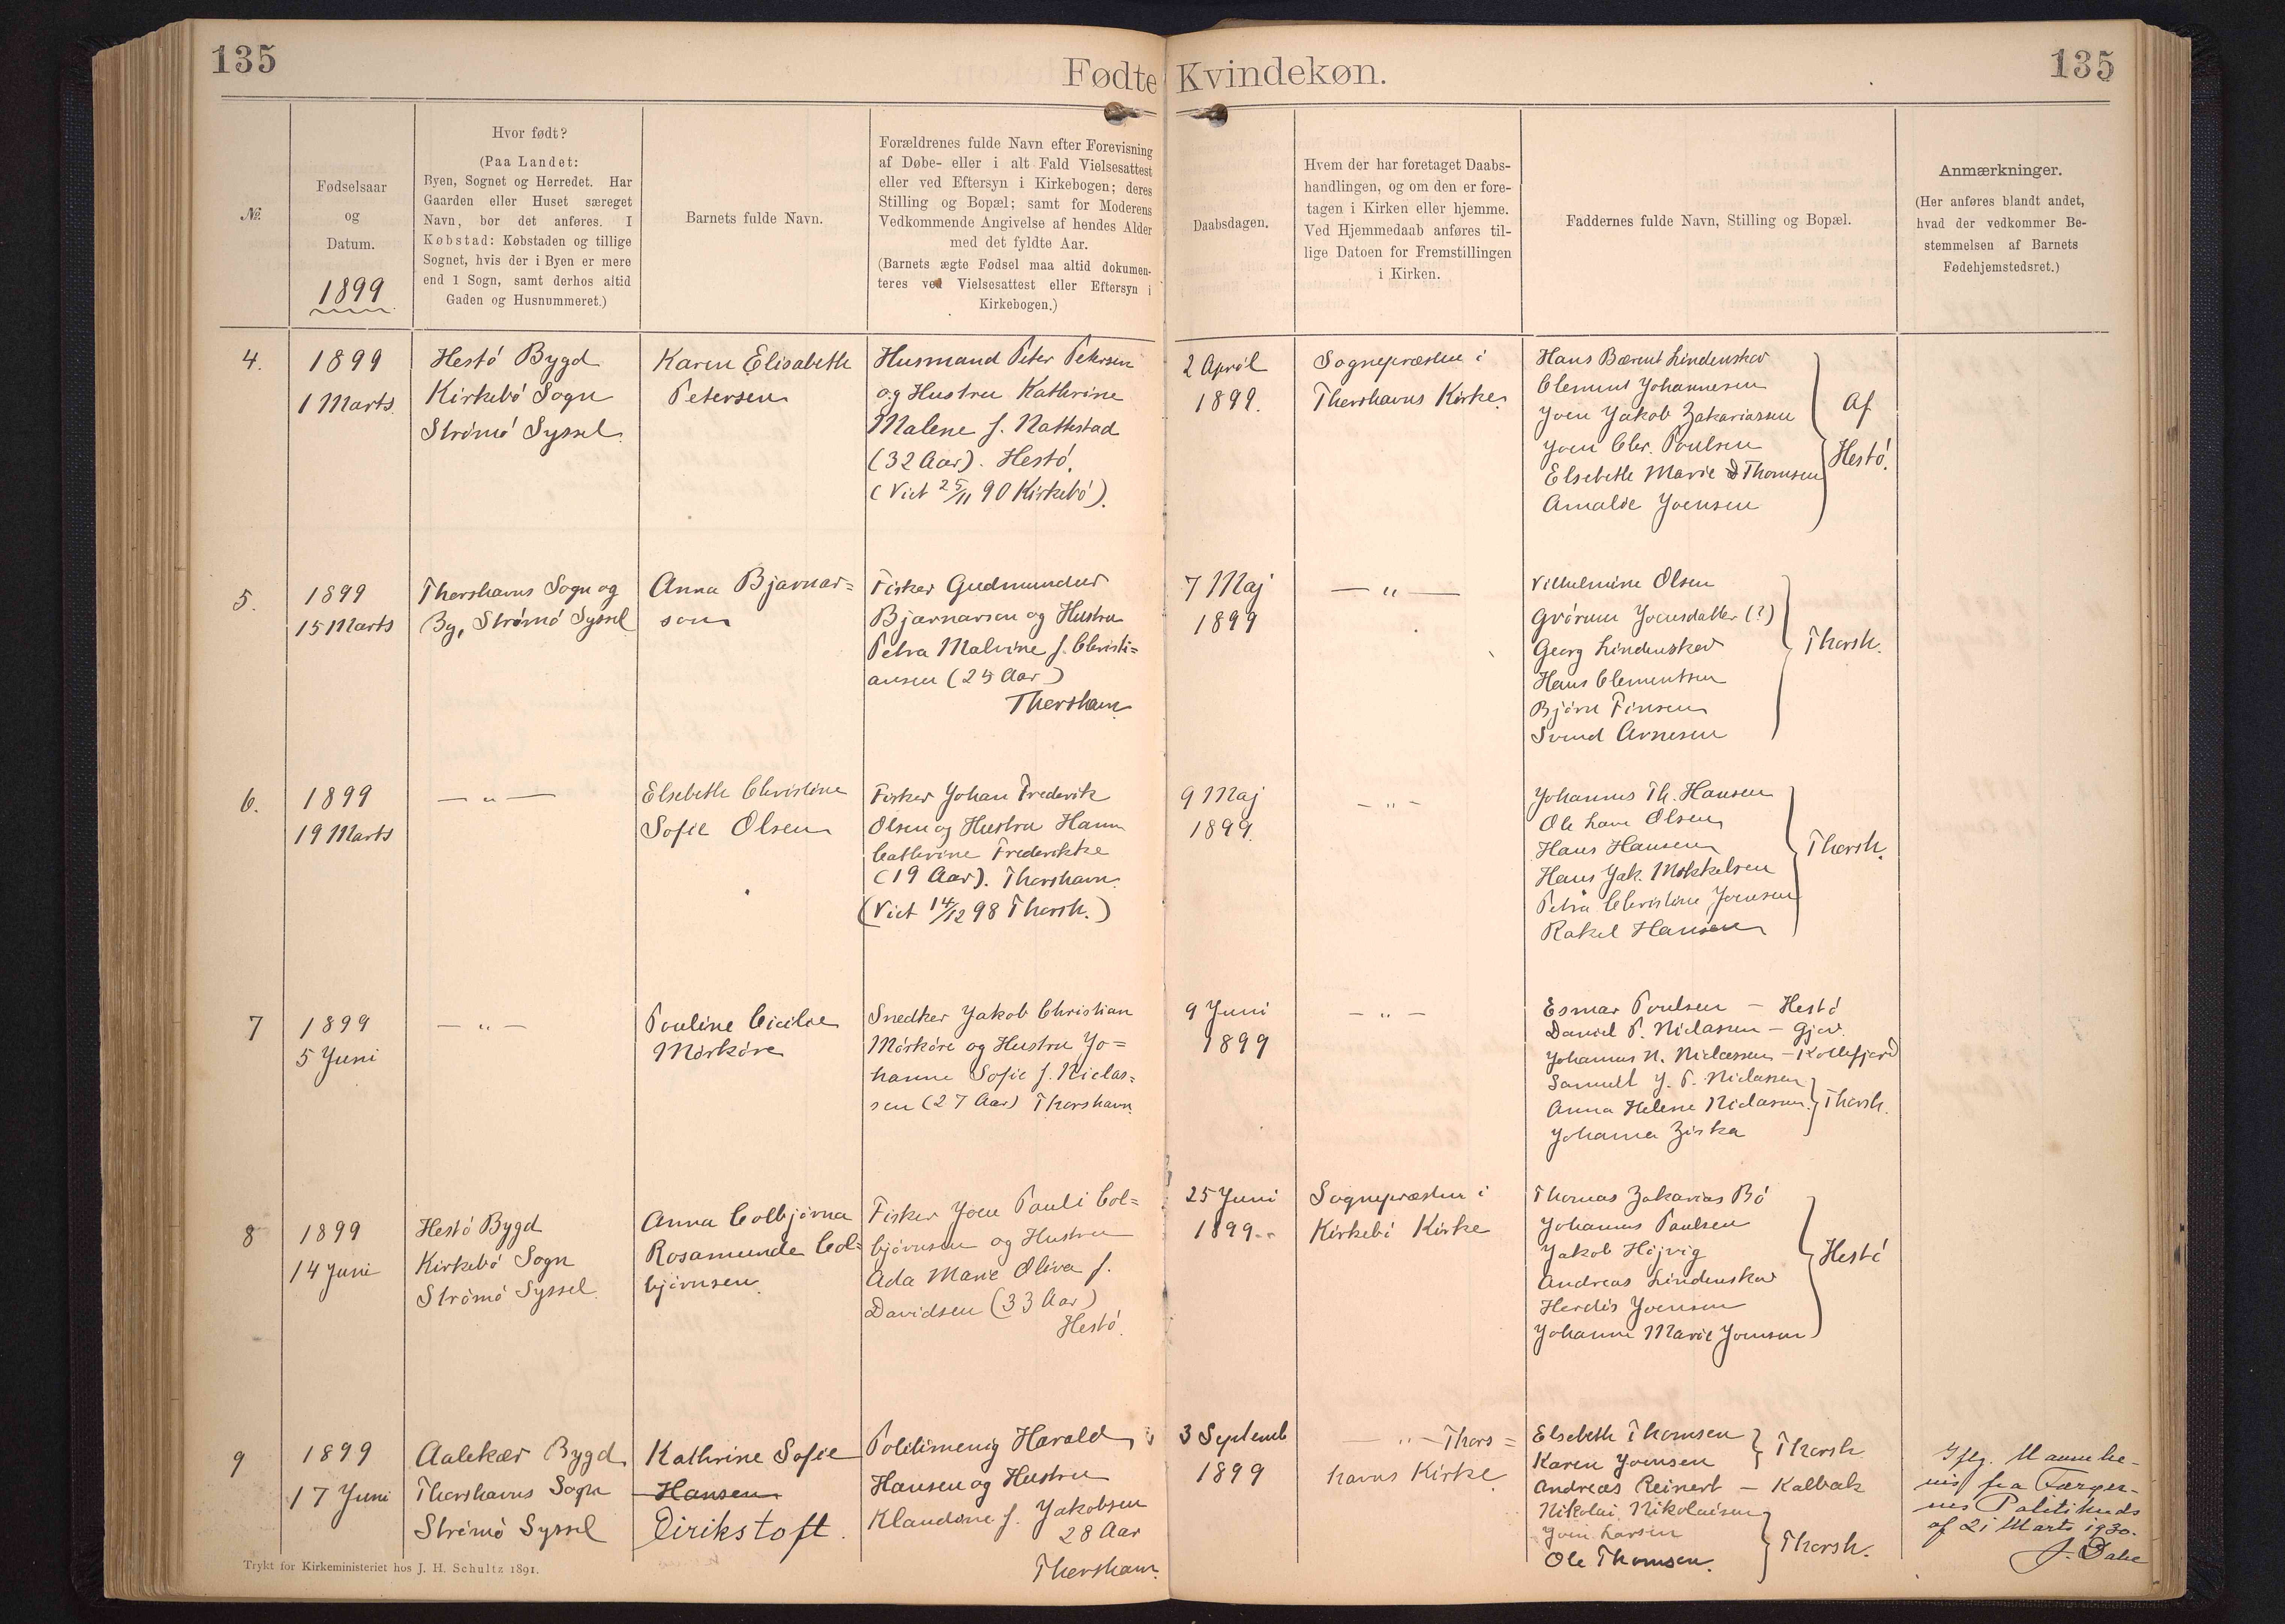 135
Fødte Kvindekøn.
135
№.
Fødselsaar
og
Datum.
1899
Hvor født?
(Paa Landet:
Byen, Sognet og Herredet. Har
Gaarden eller Huset særeget
Navn, bør det anføres. I
Købstad: Købstaden og tillige
Sognet, hvis der i Byen er mere
end 1 Sogn, samt derhos altid
Gaden og Husnummeret.)
Barnets fulde Navn.
Forældrenes fulde Navn efter Forevisning
af Døbe- eller i alt Fald Vielsesattest
eller ved Eftersyn i Kirkebogen; deres
Stilling og Bopæl; samt for Moderens
Vedkommende Angivelse af hendes Alder
med det fyldte Aar.
(Barnets ægte Fødsel maa altid dokumen-
teres ved Vielsesattest eller Eftersyn i
Kirkebogen.)
Daabsdagen.
Hvem der har foretaget Daabs-
handlingen, og om den er fore-
tagen i Kirken eller hjemme.
Ved Hjemmedaab anføres til-
lige Datoen for Fremstillingen
i Kirken.
Faddernes fulde Navn, Stilling og Bopæl.
Anmærkninger.
(Her anføres blandt andet,
hvad der vedkommer Be-
stemmelsen af Barnets
Fødehjemstedsret.)
4.
1899
1 Marts.
Hestö Bygd
Kirkebö Sogn
Strömö Syssel.
Karen Elisabeth
Petersen
Husmand Peter Petersen
og Hustru Kathrine
Malene f. Nattestad
(32 Aar). Hestö.
(Viet 25/11 90 Kirkebö).
2 April
1899.
Sognepræsten i
Thorshavns Kirke.
Hans Bærent Lindenskov
Clement Johannesen
Joen Jakob Zakariasen
Joen Chr. Poulsen
Elsebeth Marie Thomsen
Amalie Joensen
Af
Hestö.
5.
1899
15 Marts
Thorshavns Sogn og
By, Strömö Syssel
Anna Bjarnar=
son
Fisker Gudmundur
Bjarnarson og Hustru
Petra Malvine f. Christi=
ansen (25 Aar)
Thorshavn
7 Maj
1899
— " —
Vilhelmine Olsen
Joensdatter (?)
Georg Lindenskov
Hans Clementsen
Björn Finsen
Svend Arnesen
Thorsh.
6.
1899
19 Marts
— " —
Elsebeth Christine
Sofie Olsen
Fisker Johan Frederik
Olsen og Hustru Hanne
Cathrine Frederikke
(19 Aar). Thorshavn.
(Viet 14/12 98 Thorsh.)
9 Maj
1899.
— " —
Johannes Th. Hansen
Ole Olsen
Hans Hansen
Hans Jak. Mikkelsen
Petra Christine Joensen
Rakel Hansen
Thorsh.
7
1899
5 Juni
— " —
Pouline Cicilie
Mörköre
Snedker Jakob Christian
Mörköre og Hustru Jo=
hanne Sofie f. Niclas=
sen (27 Aar) Thorshavn.
9 Juni
1899
— " —
Esmar Poulsen — Hestö
Daniel P. Niclasen — Gjov.
Johannes N. Niclassen — Kollefjord
Samuel J. P. Niclasen
Anna Helene Niclasen
Johanna Ziska
Thorsh.
8
1899
14 Juni
Hestö Bygd
Kirkebö Sogn
Strömö Syssel.
Anna Colbjörna
Rosamunde Col=
björnsen.
Fisker Joen Pauli Col=
björnsen og Hustru
Ada Marie Oliva f.
Davidsen (33 Aar)
Hestö.
25 Juni
1899.
Sognepræsten i
Kirkebö Kirke
Thomas Zakarias Bö
Johannes Paulsen
Jakob Höjvig
Andreas Lindenskov
Herdis Joensen
Johanne Marie Joensen
Hestö
9
1899
17 Juni
Aalekær Bygd
Thorshavns Sogn
Strömö Syssel
Kathrine Sofie
Hansen
Eirikstoft.
Politimenig Harald
Hansen og Hustru
Klaudine f. Jakobsen
28 Aar
Thorshavn.
3 Septemb
1899
— " — Thors=
havns Kirke
Elsebeth Thomsen
Karen Joensen
Thorsh
Andreas Reinert — Kalbak
Nikolai Nikolaisen
Joen Larsen
Ole Thomsen.
Thorsh.
Iflg. Navnebe-
vis fra Færøer-
nes Politikreds
af 21 Marts 1930.
J. Dahl
Trykt for Kirkeministeriet hos J. H. Schultz 1891.